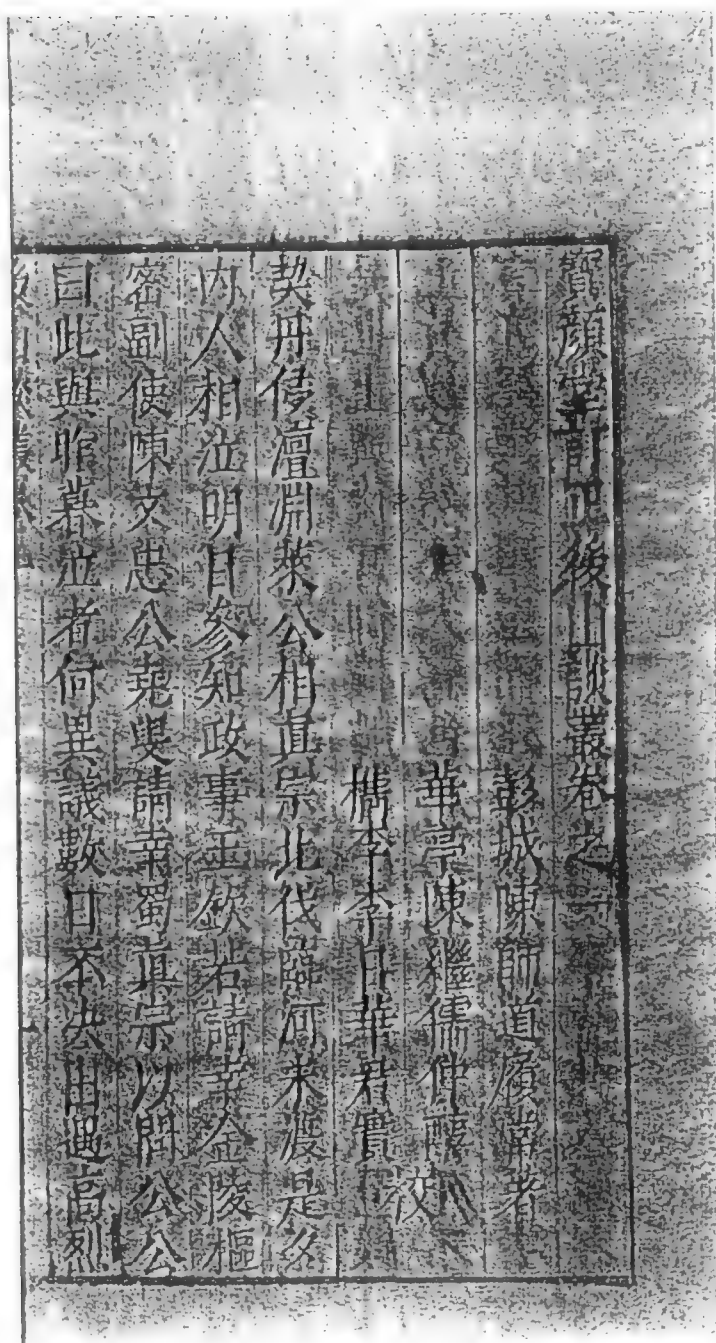 寶顏堂訂正後山談叢卷之一
彭城陳師道履常著
華亭陳繼儒仲醇
檇李李日華君實 校
契丹侵澶淵萊公相真宗北伐臨河未渡是夕
內人相泣明日參知政事王欽若請幸金陵樞
密副使陳文忠公堯叟請幸蜀真宗以問公公
曰此與昨暮泣者何異議數日不決出遇高烈